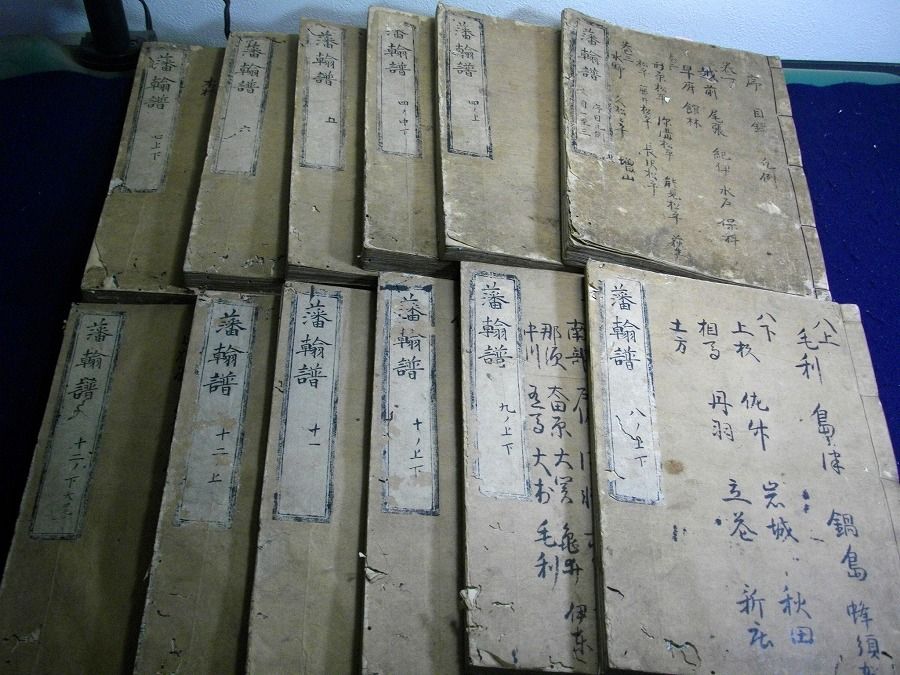 藩翰譜
七上下
藩翰譜
六
藩翰譜
五
藩翰譜
四ノ中下
藩翰譜
四ノ上
藩翰譜
序 目録 凡例
越前 尾張 紀伊 水戸 保科
甲府 館林
形原松平 深溝松平 能見松平
松平 藤井松平 長沢松平
巻三
水野 久松 増山
藩翰譜
十二ノ下
藩翰譜
十二上
藩翰譜
十一
藩翰譜
十ノ上下
藩翰譜
九ノ上下
南部
那須 大関 亀井 伊東
中川 大村 毛利
藩翰譜
八ノ上下
八上
毛利 島津 鍋島 蜂須
八下
上杉 佐竹 岩城 秋田
相馬 丹羽 立花 新庄
土方